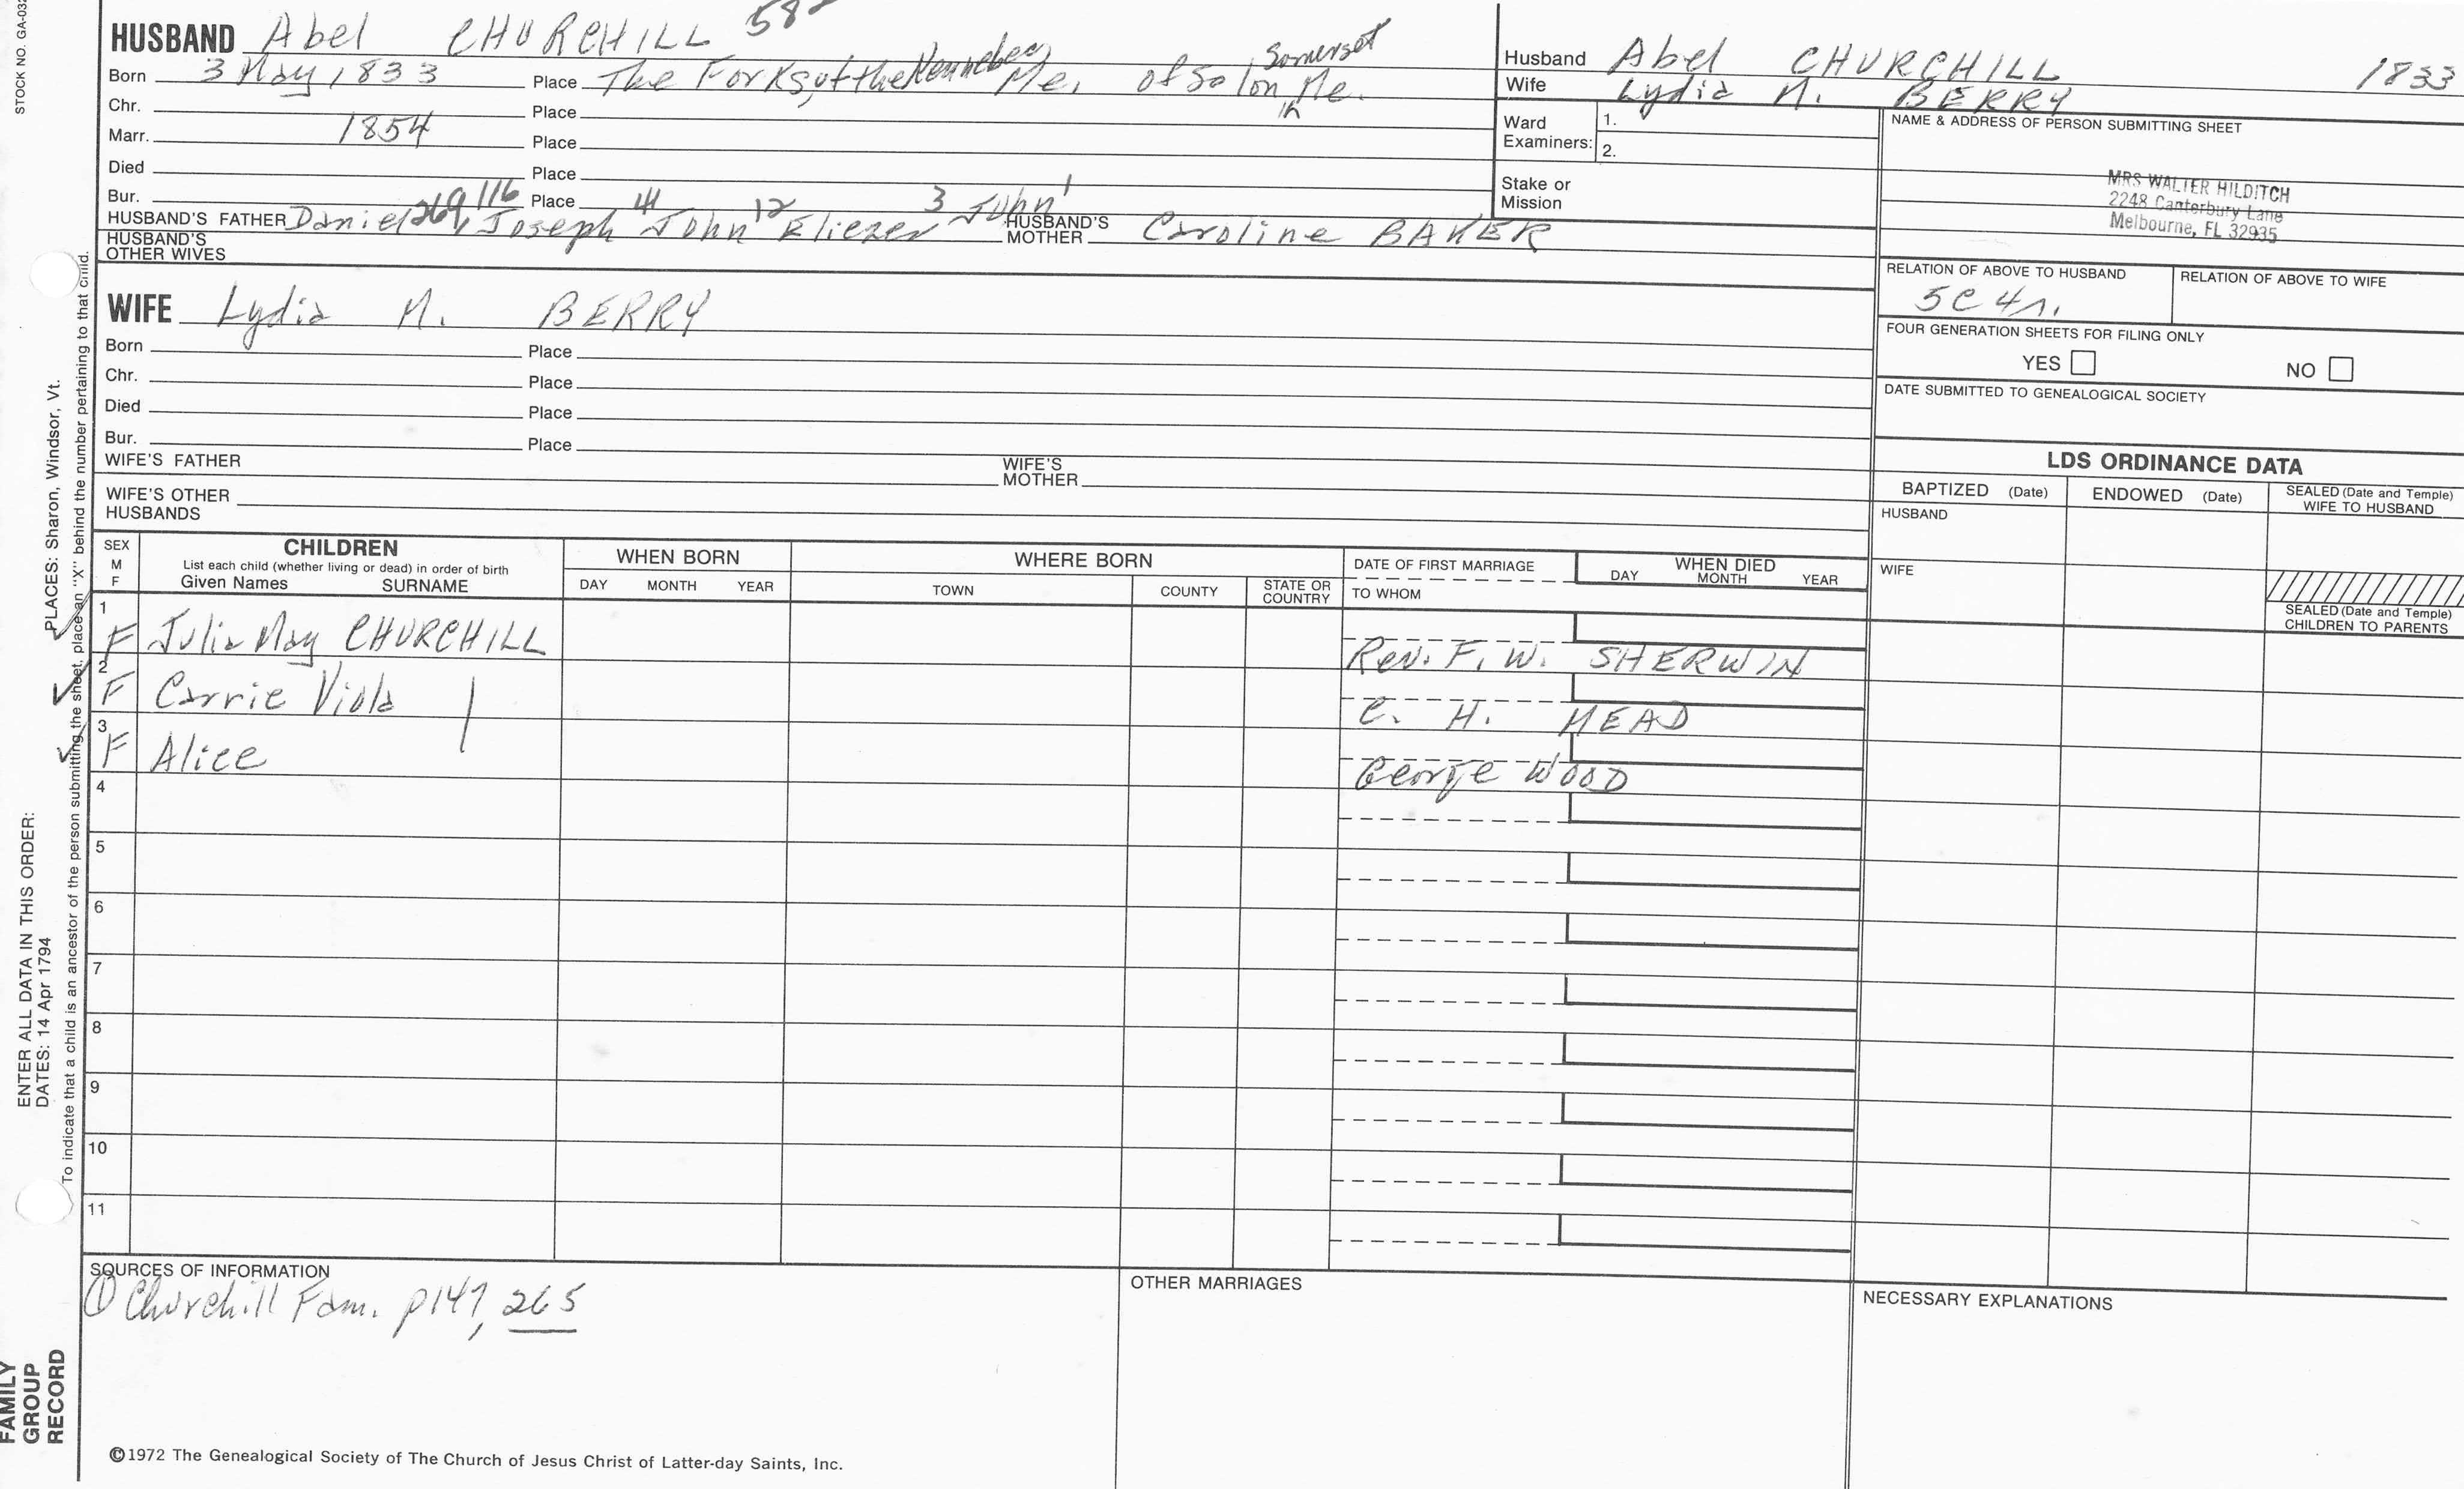 STOCK NO. GA-032
HUSBAND Abel CHURCHILL 58
Born 3 May 1833 Place The Forks, of the Kennebec Me. of Solon, Somerset Me.
Chr. Place
Marr. 1854 Place
Died Place
Bur. Place
HUSBAND'S FATHER Daniel 269, Joseph 116 John 41 Eliezer 12 3 John 1 HUSBAND'S MOTHER Caroline BAKER
HUSBAND'S OTHER WIVES
Husband Abel CHURCHILL 1833
Wife Lydia M. BERRY
Ward Examiners: 1.
2.
Stake or Mission
NAME & ADDRESS OF PERSON SUBMITTING SHEET
MRS WALTER HILDITCH
2248 Canterbury Lane
Melbourne, FL 32935
RELATION OF ABOVE TO HUSBAND RELATION OF ABOVE TO WIFE
5C4r.
FOUR GENERATION SHEETS FOR FILING ONLY
YES NO
DATE SUBMITTED TO GENEALOGICAL SOCIETY
WIFE Lydia M. BERRY
Born Place
Chr. Place
Died Place
Bur. Place
WIFE'S FATHER WIFE'S MOTHER
WIFE'S OTHER HUSBANDS
LDS ORDINANCE DATA
BAPTIZED (Date) ENDOWED (Date) SEALED (Date and Temple) WIFE TO HUSBAND
HUSBAND
WIFE
SEALED (Date and Temple) CHILDREN TO PARENTS
SEX M F
CHILDREN
List each child (whether living or dead) in order of birth
Given Names SURNAME
WHEN BORN
DAY MONTH YEAR
WHERE BORN
TOWN COUNTY STATE OR COUNTRY
DATE OF FIRST MARRIAGE
TO WHOM
WHEN DIED
DAY MONTH YEAR
1 F Julia May CHURCHILL Rev. F. W. SHERWIN
2 F Carrie Viola C. H. MEAD
3 F Alice George WOOD
4
5
6
7
8
9
10
11
SOURCES OF INFORMATION
① Churchill Fam. p147, 265
OTHER MARRIAGES
NECESSARY EXPLANATIONS
©1972 The Genealogical Society of The Church of Jesus Christ of Latter-day Saints, Inc.
FAMILY GROUP RECORD
ENTER ALL DATA IN THIS ORDER:
DATES: 14 Apr 1794
PLACES: Sharon, Windsor, Vt.
To indicate that a child is an ancestor of the person submitting the sheet, place an "X" behind the number pertaining to that child.